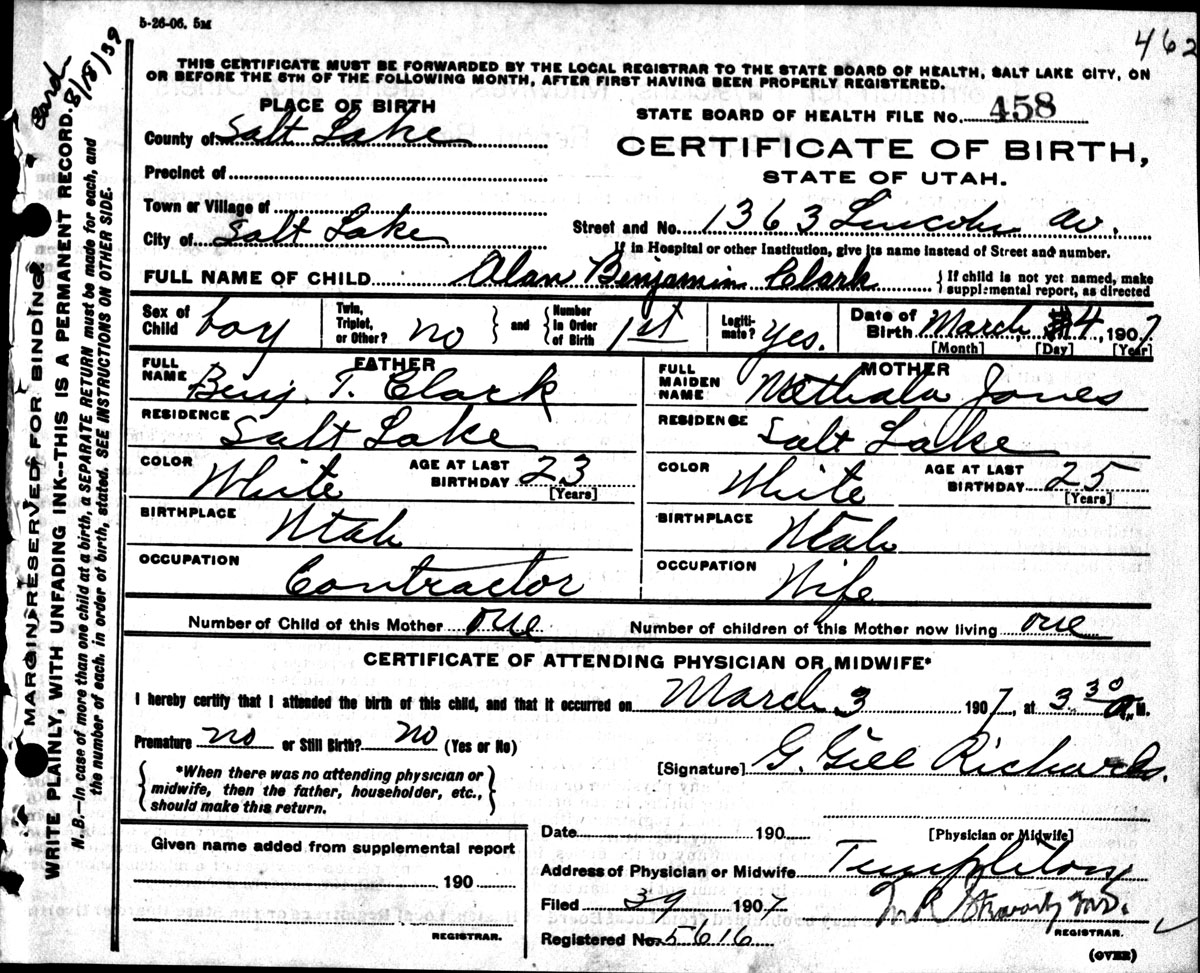 5-26-06. 5M
462
THIS CERTIFICATE MUST BE FORWARDED BY THE LOCAL REGISTRAR TO THE STATE BOARD OF HEALTH, SALT LAKE CITY, ON
OR BEFORE THE 5TH OF THE FOLLOWING MONTH, AFTER FIRST HAVING BEEN PROPERLY REGISTERED.
PLACE OF BIRTH
STATE BOARD OF HEALTH FILE No. 458
County of Salt Lake
CERTIFICATE OF BIRTH,
STATE OF UTAH.
Precinct of
Town or Village of
City of Salt Lake
Street and No. 1363 Lincoln av.
If in Hospital or other Institution, give its name instead of Street and number.
FULL NAME OF CHILD Alan Benjamin Clark
{If child is not yet named, make
supplemental report, as directed
Sex of Child boy
Twin, Triplet, or Other? no } and { Number in Order of Birth 1st
Legiti-mate? yes.
Date of Birth March, 4, 1907
[Month] [Day] [Year]
FATHER
FULL NAME Benj. T. Clark
RESIDENCE Salt Lake
COLOR White AGE AT LAST BIRTHDAY 23
[Years]
BIRTHPLACE Utah
OCCUPATION Contractor
MOTHER
FULL MAIDEN NAME Jones
RESIDENCE Salt Lake
COLOR White AGE AT LAST BIRTHDAY 25
[Years]
BIRTHPLACE Utah
OCCUPATION Wife
Number of Child of this Mother one Number of children of this Mother now living one
CERTIFICATE OF ATTENDING PHYSICIAN OR MIDWIFE*
I hereby certify that I attended the birth of this child, and that it occurred on March 3 1907, at 3 30 a. M.
Premature no or Still Birth? no (Yes or No)
{*When there was no attending physician or
midwife, then the father, householder, etc.,
should make this return.}
[Signature] G. Gill Richards.
[Physician or Midwife]
Given name added from supplemental report
190
REGISTRAR.
Date 190
Address of Physician or Midwife Templeton
Filed 39 1907
REGISTRAR.
Registered No. 5616
(OVER)
MARGIN RESERVED FOR BINDING.
WRITE PLAINLY, WITH UNFADING INK--THIS IS A PERMANENT RECORD.
Card 8/18/39
N. B.—In case of more than one child at a birth, a SEPARATE RETURN must be made for each, and
the number of each, in order of birth, stated. SEE INSTRUCTIONS ON OTHER SIDE.